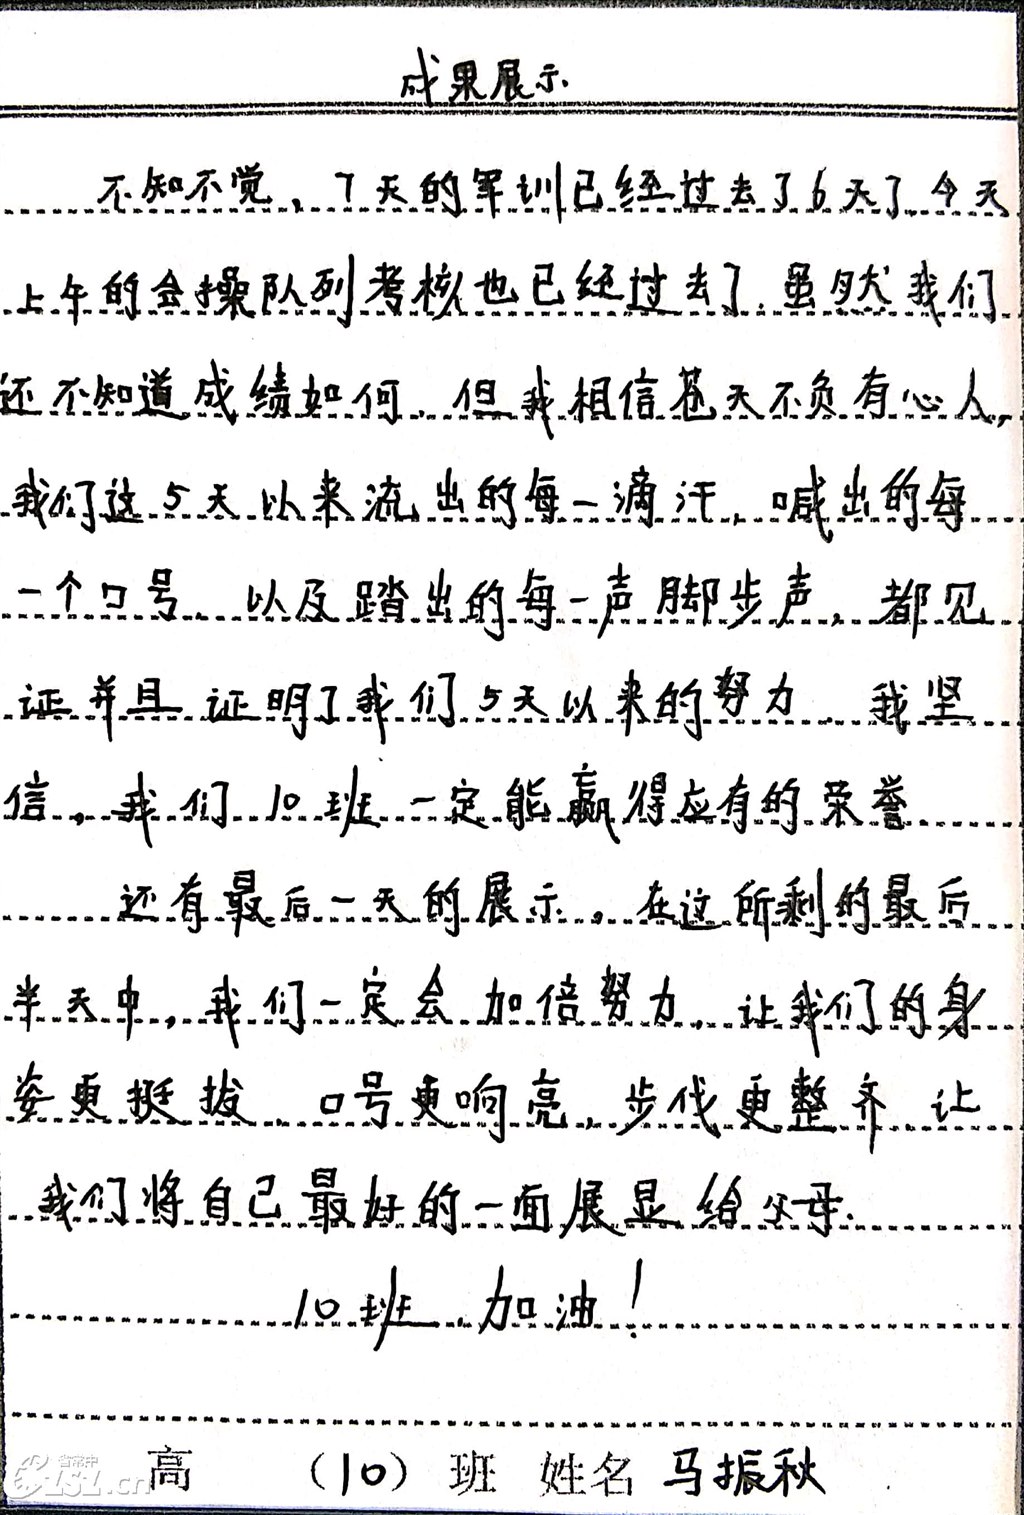 成果展示
不知不觉，7天的军训已经过去了6天了.今天
上午的会操队列考核也已经过去了.虽然我们
还不知道成绩如何.但我相信苍天不负有心人,
我们这5天以来流出的每一滴汗,喊出的每
一个口号.以及踏出的每一声脚步声,都见
证并且证明了我们5天以来的努力.我坚
信,我们10班一定能赢得应有的荣誉.
还有最后一天的展示,在这所剩的最后
半天中,我们一定会加倍努力,让我们的身
姿更挺拔,口号更响亮,步伐更整齐.让
我们将自己最好的一面展显给父母.
10班,加油!
高 （10）班 姓名 马振秋
省常中
CZSZ.cn